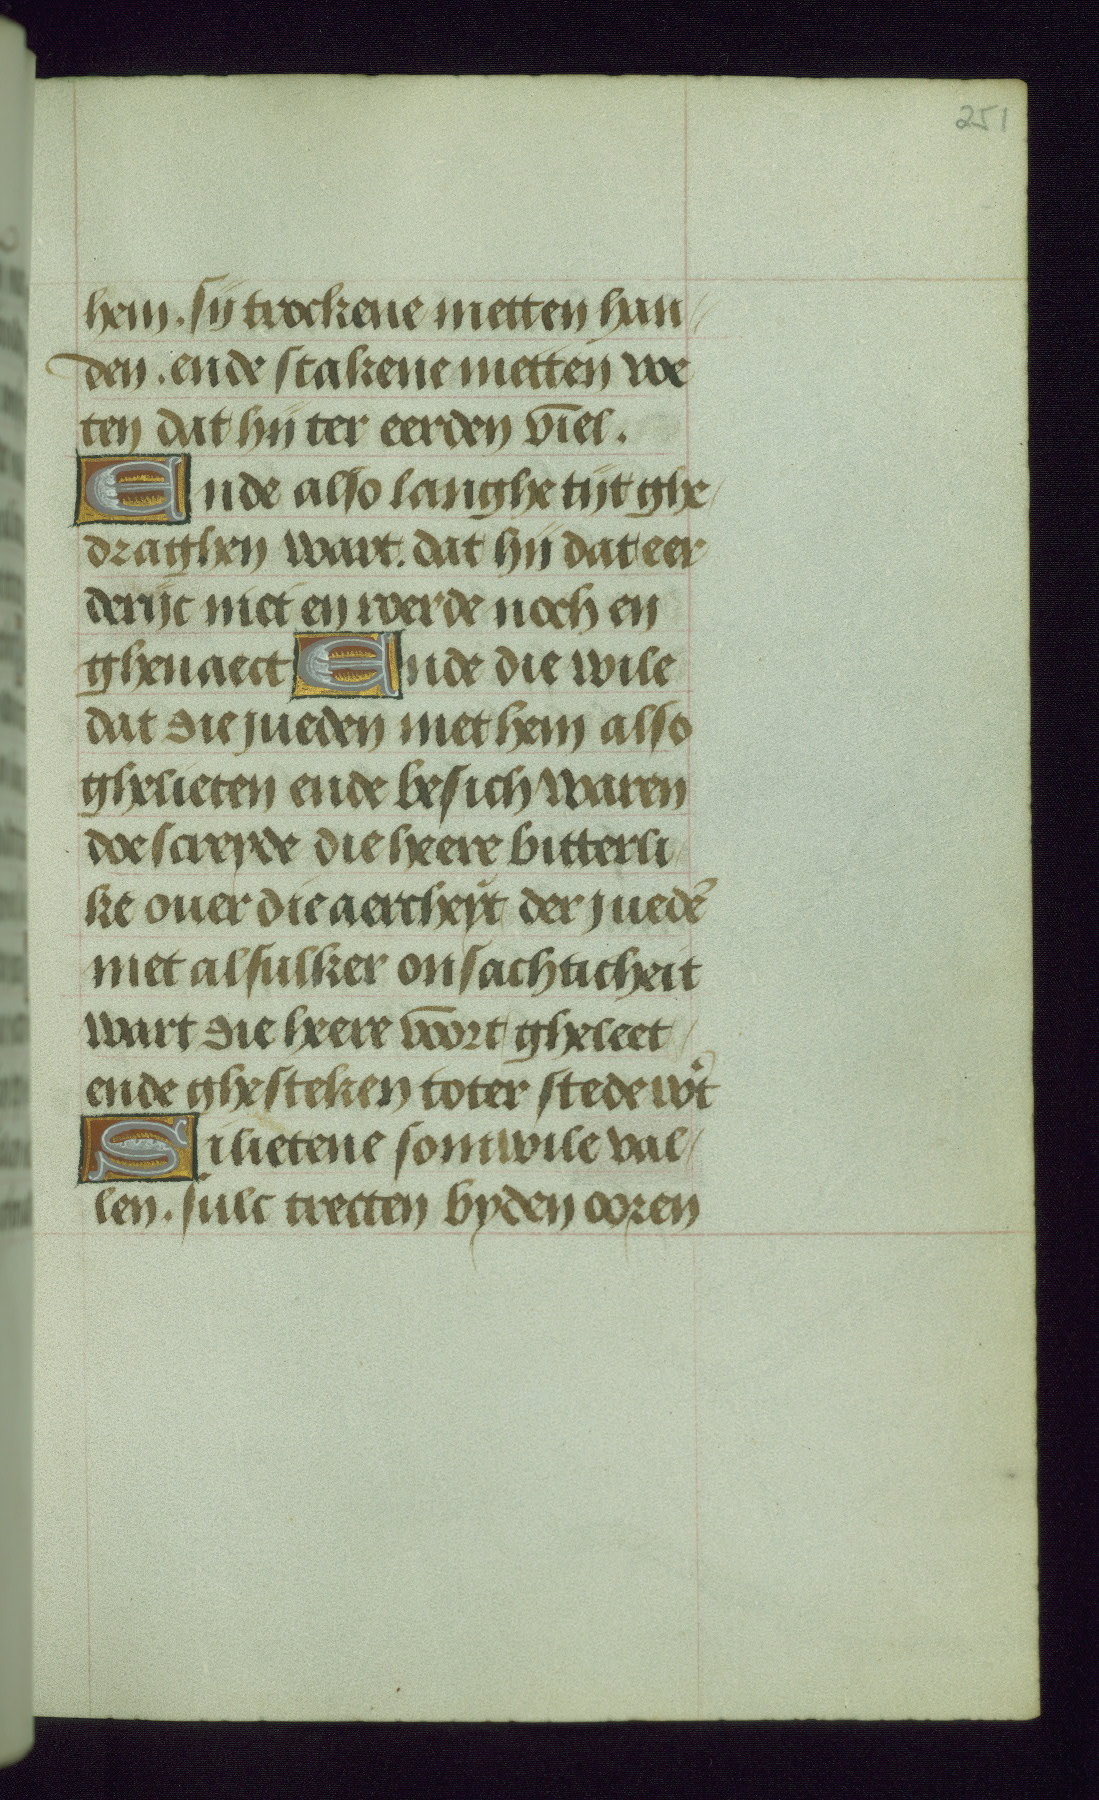 251
hem. sij trockene metten han
den. ende stakene metten voe
ten dat hij ter eerden viel.
Ende also langhe tijt ghe
draghen wart. dat hij dat eer
derijc niet en roerde noch en
ghenaect Ende die wile
dat die jueden met hem also
ghelieten ende besich waren
doe screyde die heere bitterli
ke ouer die aercheyt der juedē
met alsulker onsachticheit
wart die heere voort gheleet
ende ghesteken toter stede wt
Si lietene somwile val
len. sulc trecten byden ooren